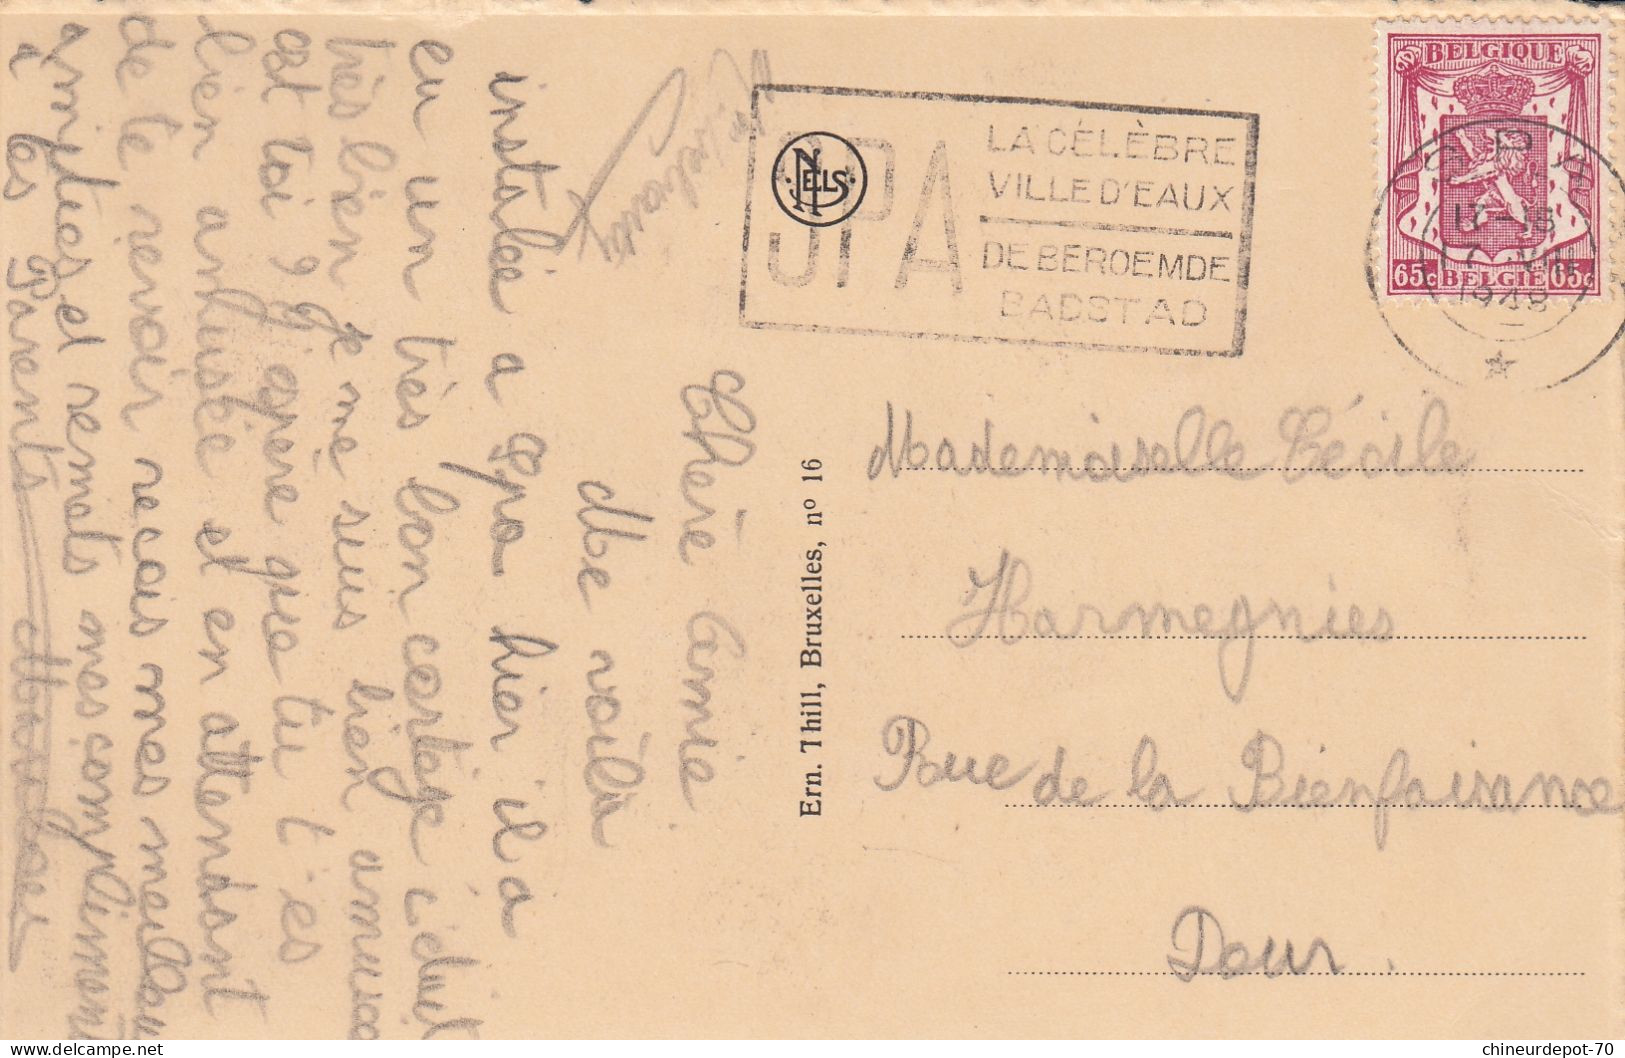 Chère Cemie
Me voilà
instalée a Spa hier il a
eu un très bon cortège c'éuit
très bien je me suis bien amuse
est toi ? j'opere que tu t'es
bien amusée et en attendant
de te revoir recois mes meilleu
amities et remets mes compliment
a tes Parents
SPA
LA CÉLÈBRE
VILLE D'EAUX
DE BEROEMDE
BADSTAD
NELS
BELGIQUE
65c BELGIË 65c
SPA
17-18
1948
Ern. Thill, Bruxelles, no 16
Mademoiselle Cécile
Harmegnies
Rue de la Bienfaisance
Dour.
chineurdepot-70